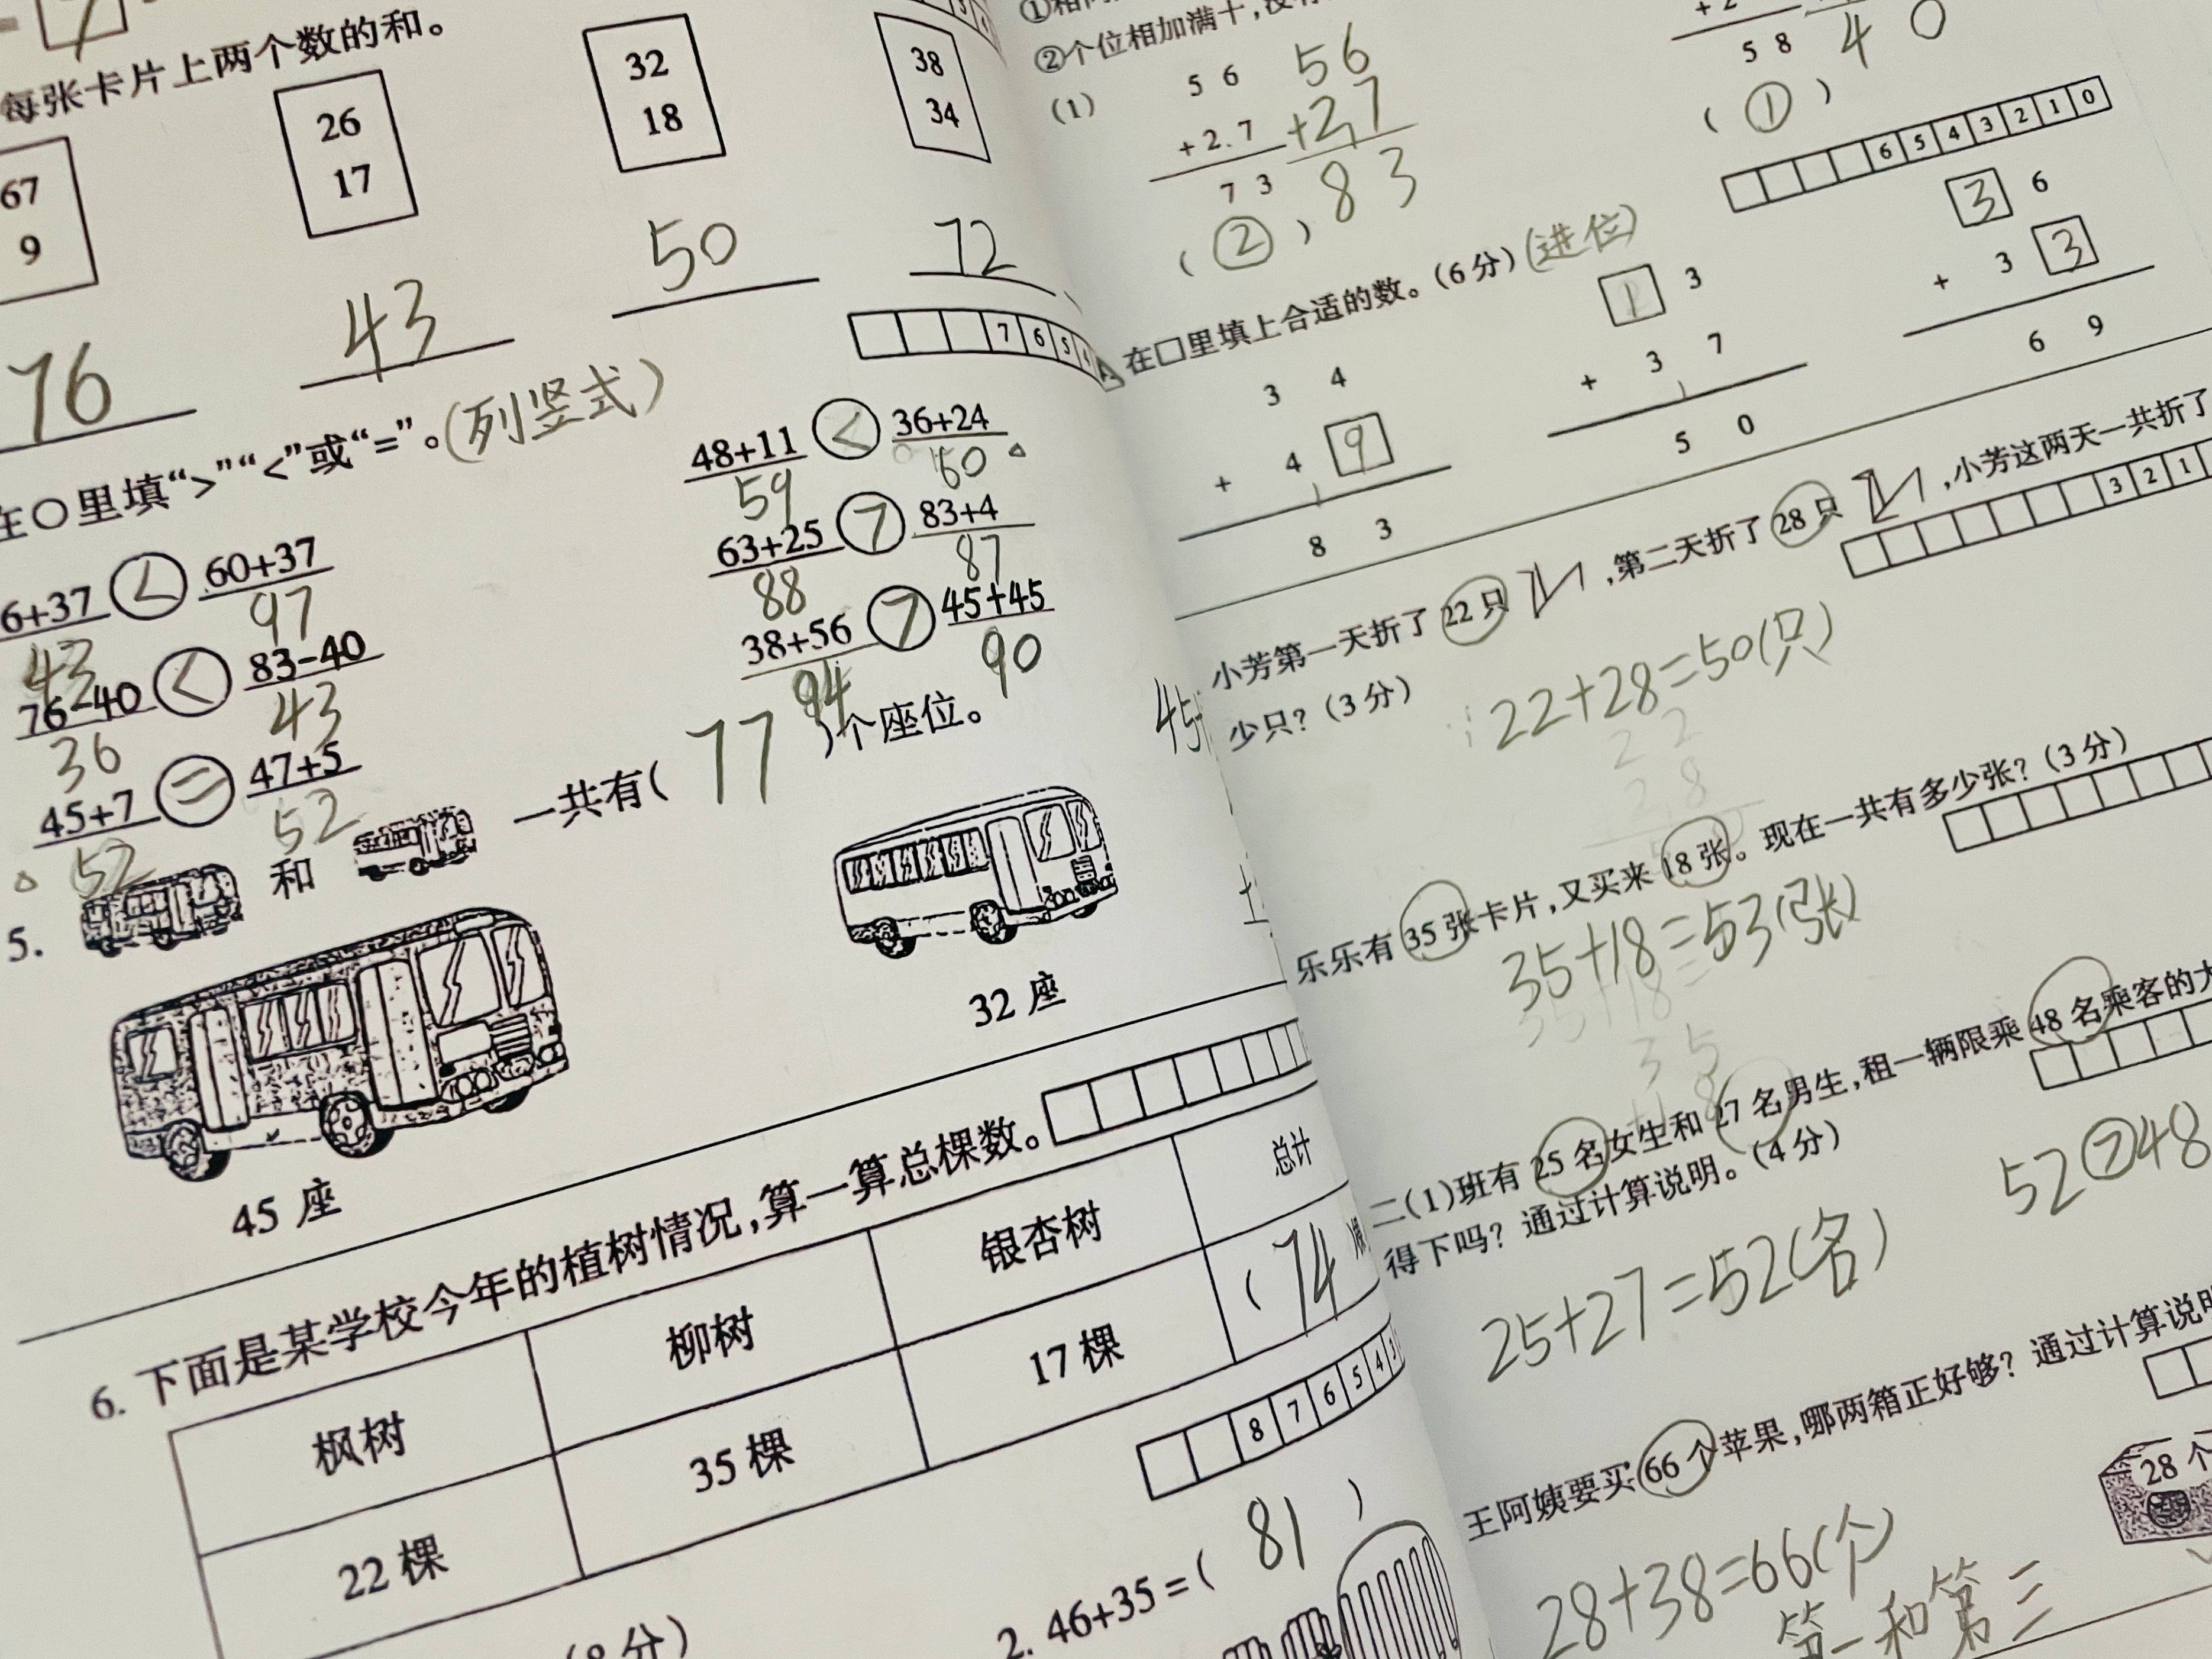 每张卡片上两个数的和。
67 26 32 38
9 17 18 34
76 43 50 72
7 6 5 4
在○里填“>”“<”或“=”。(列竖式)
48+11 < 36+24
59 60
6+37 < 60+37 63+25 > 83+4
43 97 88 87
76-40 < 83-40 38+56 > 45+45
36 43 94 90
45+7 = 47+5
52 52
5. 和 一共有( 77 )个座位。
45座 32座
6. 下面是某学校今年的植树情况,算一算总棵数。
枫树 柳树 银杏树 总计
22棵 35棵 17棵 ( 74 )棵
8 7 6 5 4 3
(8分)
2. 46+35=( 81 )
②个位相加满十,没有
(1) 5 6 56
+ 2 7 +27
7 3 83
( ② )
5 8 40
( ① )
6 5 4 3 2 1 0
在□里填上合适的数。(6分)(进位)
3 4 1 3 3 6
+ 4 9 + 3 7 + 3 3
8 3 5 0 6 9
3 2 1
小芳第一天折了22只 ,第二天折了28只 ,小芳这两天一共折了
少只?(3分)
22+28=50(只)
22
28
乐乐有35张卡片,又买来18张。现在一共有多少张?(3分)
35+18=53(张)
35
+18
二(1)班有25名女生和27名男生,租一辆限乘48名乘客的大
得下吗?通过计算说明。(4分)
25+27=52(名) 52>48
王阿姨要买66个苹果,哪两箱正好够?通过计算说明
28个
28+38=66(个)
第一和第三